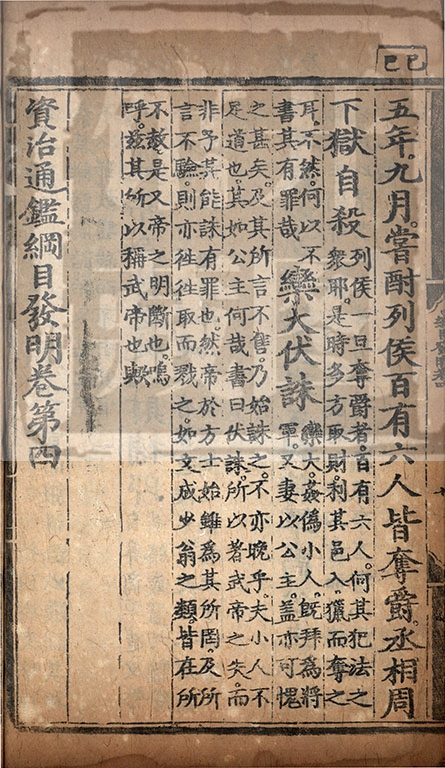 五年九月嘗酎列侯百有六人皆奪爵丞相周
下獄自殺
列侯一日奪爵者百有六人何其犯法之
衆耶是時多方取財利其邑入獵而奪之
耳不然何以不
書其有罪哉
欒大伏誅
欒大姦偽小人旣拜為將
軍又妻以公主蓋亦可愧
之甚矣及其所言不售乃始誅之不亦晚乎夫小人不
足道也其如公主何哉書曰伏誅所以著武帝之失而
非予其能誅有罪也然帝於方士始雖為其所罔及所
言不驗則亦徃徃取而戮之如文成少翁之類皆在所
不赦是又帝之明斷也嗚
呼兹其所以稱武帝也歟
資治通鑑綱目發明卷第四